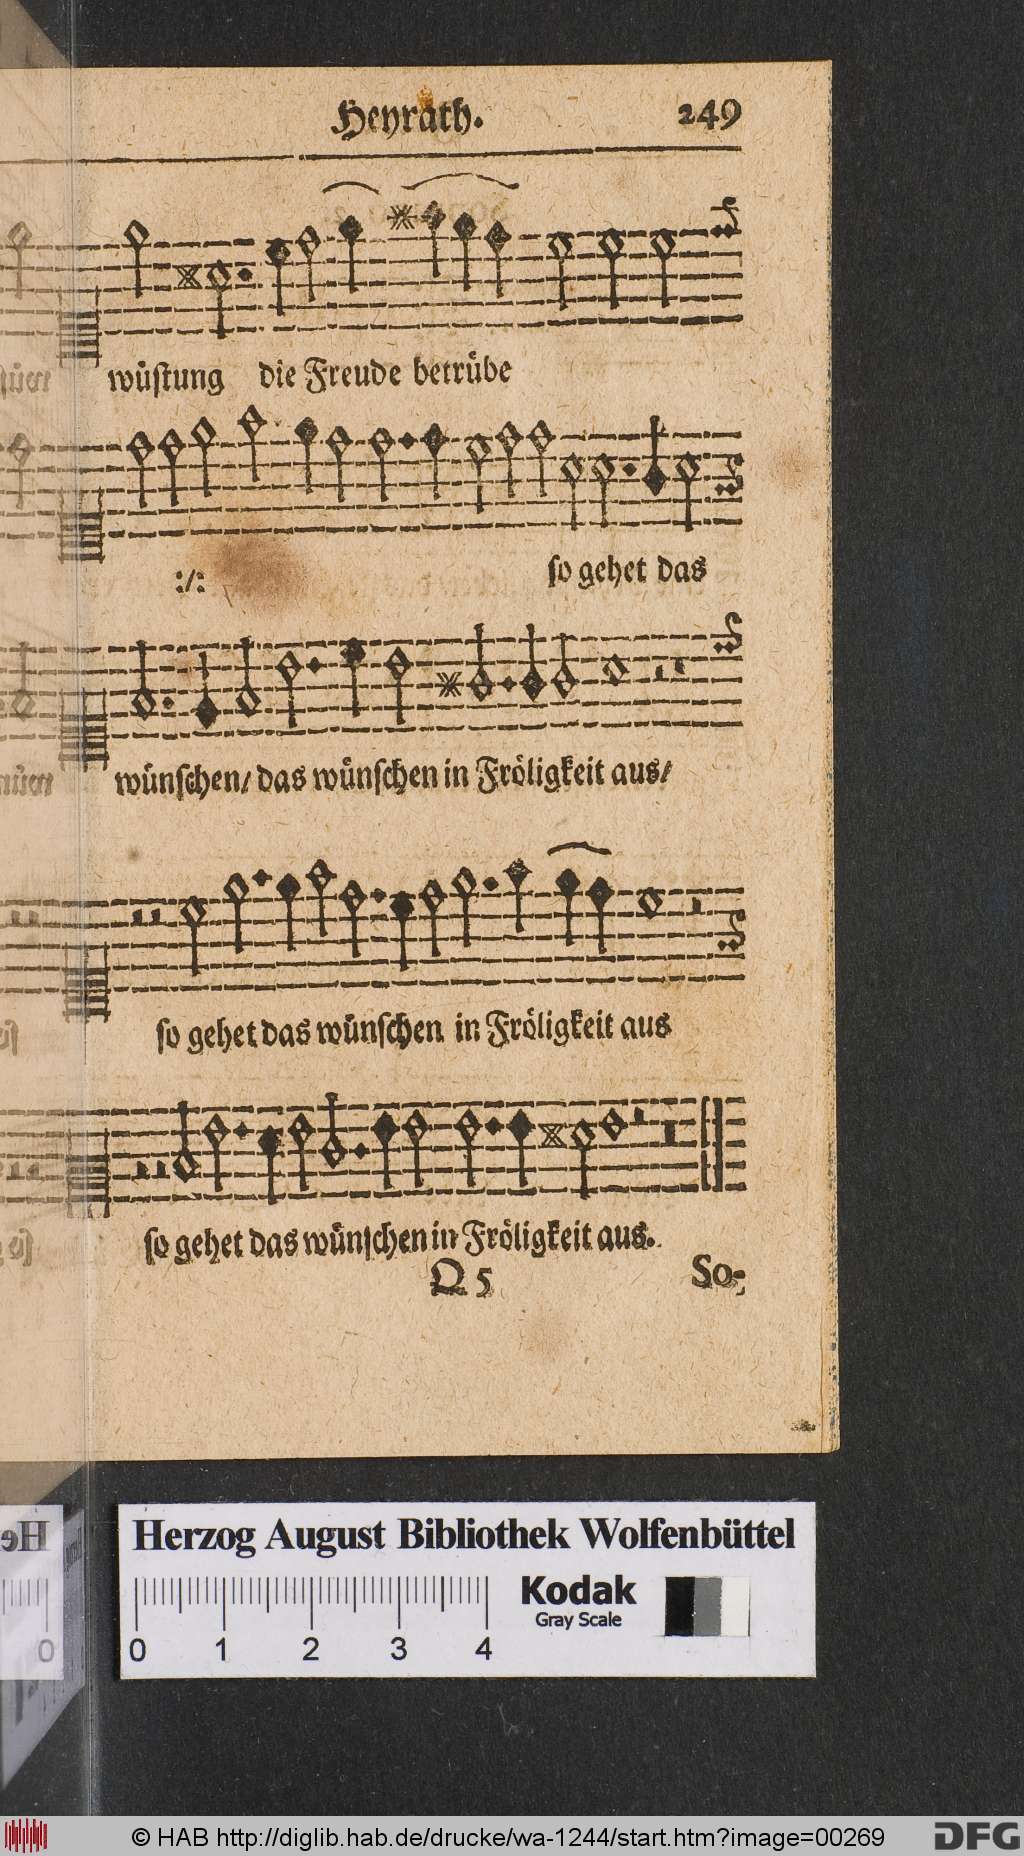 Heyrath. 249
wüſtung die Freude betrübe
:/: ſo gehet das
wünſchen/ das wünſchen in Fröligkeit aus/
ſo gehet das wünſchen in Fröligkeit aus
ſo gehet das wünſchen in Fröligkeit aus.
Q 5 So-
Herzog August Bibliothek Wolfenbüttel
Kodak
Gray Scale
0 1 2 3 4
0
© HAB http://diglib.hab.de/drucke/wa-1244/start.htm?image=00269
DFG